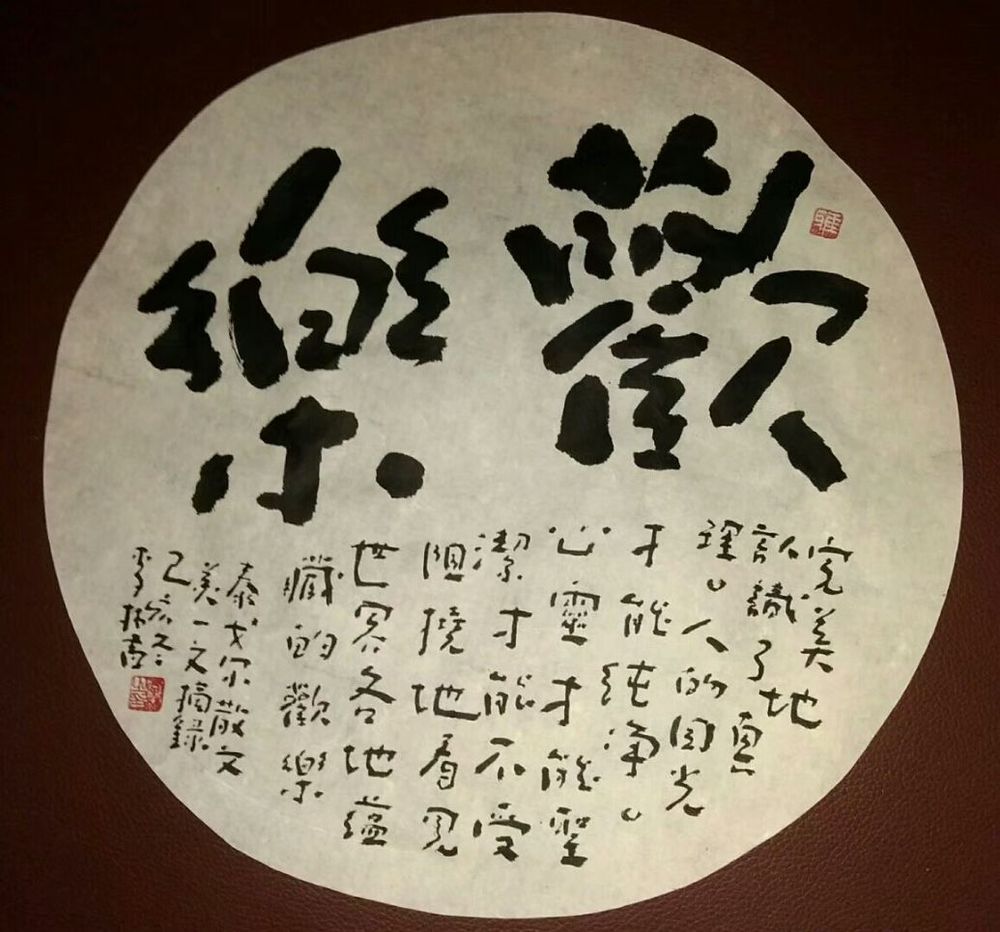 歡樂
完美地
認識了真
理。人的目光
才能純淨。
心靈才能聖
潔才能不受
阻撓地看見
世界各地蘊
藏的歡樂
泰戈尔散文
美一文摘錄
己亥冬